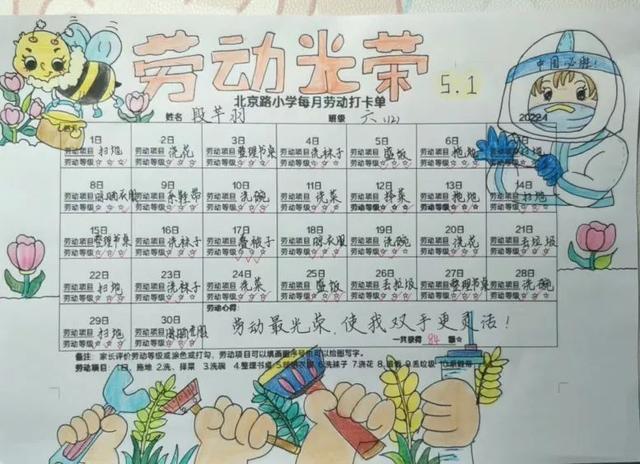 中国必胜!
劳动光荣
5.1
北京路小学每月劳动打卡单
姓名 段芊羽 班级 六(2) 2022.4
1日 2日 3日 4日 5日 6日
劳动项目 扫地 劳动项目 浇花 劳动项目 整理书桌 劳动项目 洗袜子 劳动项目 盛饭 劳动项目 拖地
劳动等级☆☆☆ 劳动等级☆☆☆ 劳动等级☆☆☆ 劳动等级☆☆☆ 劳动等级☆☆☆ 劳动等级☆☆☆
8日 9日 10日 11日 12日 13日 14日
劳动项目 晾晒衣服 劳动项目 系鞋带 劳动项目 洗碗 劳动项目 洗菜 劳动项目 择菜 劳动项目 拖地 劳动项目 扫地
劳动等级☆☆☆ 劳动等级☆☆☆ 劳动等级☆☆☆ 劳动等级☆☆☆ 劳动等级☆☆☆ 劳动等级☆☆☆ 劳动等级☆☆☆
15日 16日 17日 18日 19日 20日 21日
劳动项目 整理书桌 劳动项目 洗袜子 劳动项目 叠被子 劳动项目 衣服 劳动项目 洗碗 劳动项目 浇花 劳动项目 丢垃圾
劳动等级☆☆☆ 劳动等级☆☆☆ 劳动等级☆☆☆ 劳动等级☆☆☆ 劳动等级☆☆☆ 劳动等级☆☆☆ 劳动等级☆☆☆
22日 23日 24日 25日 26日 27日 28日
劳动项目 扫地 劳动项目 洗袜子 劳动项目 洗菜 劳动项目 盛饭 劳动项目 去垃圾 劳动项目 整理书桌 劳动项目 洗碗
劳动等级☆☆☆ 劳动等级☆☆☆ 劳动等级☆☆☆ 劳动等级☆☆☆ 劳动等级☆☆☆ 劳动等级☆☆☆ 劳动等级☆☆☆
29日 30日 劳动心得:
劳动项目 扫地 劳动项目 衣服 劳动最光荣,使我双手更灵活!
劳动等级☆☆☆ 劳动等级☆☆☆ 一共获得 84 颗☆
备注: 家长评价劳动等级或涂色或打勾,劳动项目可以填画图序号也可以绘图写字。
劳动项目: 拖地 2.洗、择菜 3.洗碗 4.整理书桌 6.洗袜子 7.浇花 9.丢垃圾